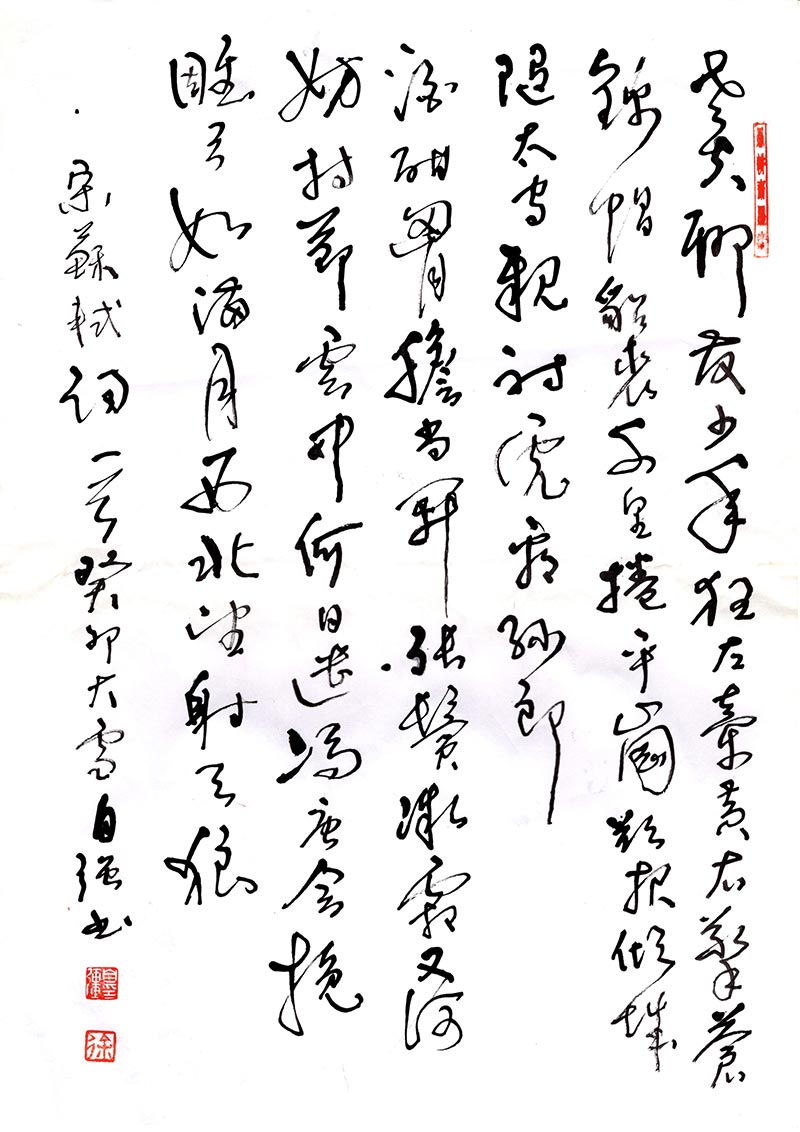 老夫聊发少年狂左牽黄右擎蒼
錦帽貂裘千捲平岡欲报倾城
随太守親射虎看孫郎
酒酣胸膽尚開張鬢微霜又何
妨持節雲中何日遣馮唐會挽
雕弓如滿月西北望射天狼
宋蘇軾詞一首癸卯大雪自强书
徐